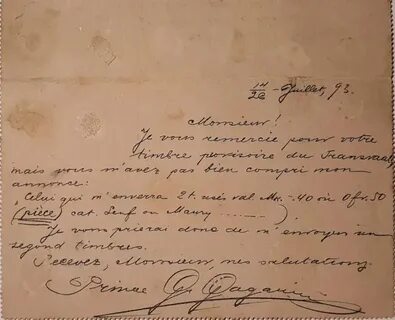 14/26 - Juillet, 93.
Monsieur!
Je vous remercie pour votre
timbre provisoire du Transvaal,
mais vous m'avez pas bien compri mon
annonce:
"Celui qui m'enverra 2 t. usés val Mk. -.40 où 0 fr. 50
(pièce) cat. Senf ou Maury ........)
Je vous prierai donc de m'envoyer un
segond timbres.
Recevez, Monsieur mes salutations
Prince